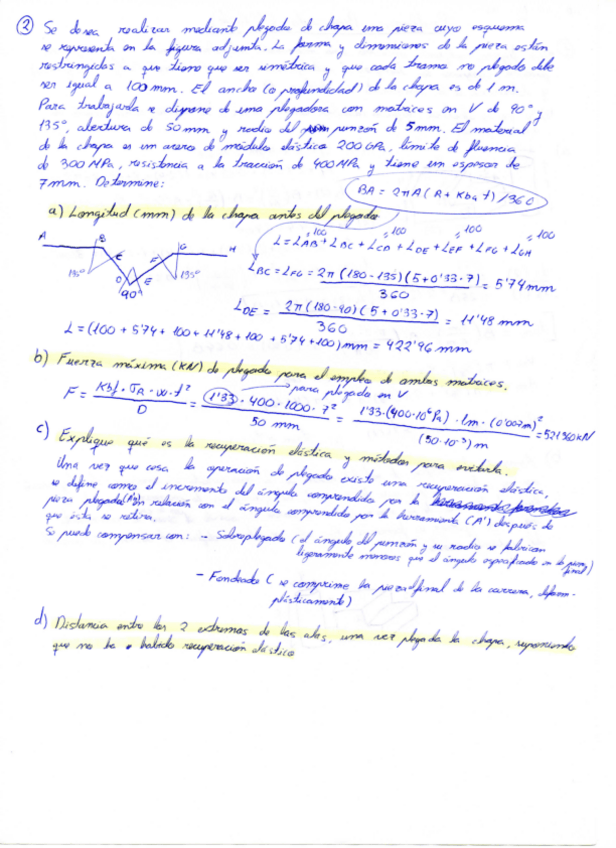 ② Se desea realizar mediante plegado de chapa una pieza cuyo esquema
se representa en la figura adjunta. La forma y dimensiones de la pieza están
restringidos a que tiene que ser simétrica y que cada tramo no plegado debe
ser igual a 100 mm. El ancho (o profundidad) de la chapa es de 1 m.
Para trabajarla se dispone de una plegadora con matrices en V de 90° y
135°, abertura de 50 mm y radio del punzón de 5 mm. El material
de la chapa es un acero de módulo elástico 200 GPa, límite de fluencia
de 300 MPa, resistencia a la tracción de 400 MPa y tiene un espesor de
7 mm. Determine:
BA = 2πA (R + Kba t) / 360
a) Longitud (mm) de la chapa antes del plegado
=100 =100 =100 =100
L = LAB + LBC + LCD + LDE + LEF + LFG + LGH
A B C D E F G H
135° 90° 135°
LBC = LFG = 2π (180 - 135) (5 + 0'33 · 7) / 360 = 5'74 mm
LDE = 2π (180 - 90) (5 + 0'33 · 7) / 360 = 11'48 mm
L = (100 + 5'74 + 100 + 11'48 + 100 + 5'74 + 100) mm = 422'96 mm
b) Fuerza máxima (KN) de plegado para el empleo de ambas matrices.
para plegado en V
F = Kbf · σR · w · t² / D = 1'33 · 400 · 1000 · 7² / 50 mm = 1'33 · (400·10⁶ Pa) · 1m · (0'007m)² / (50·10⁻³) m = 521'360 kN
c) Explique qué es la recuperación elástica y métodos para evitarla.
Una vez que cesa la operación de plegado existe una recuperación elástica,
se define como el incremento del ángulo comprendido por la
pieza plegada (A') en relación con el ángulo comprendido por la herramienta (A') después de
que ésta se retira.
Se puede compensar con: - Sobreplegado (el ángulo del punzón y su radio se fabrican
ligeramente menores que el ángulo especificado en la pieza
final)
- Fondeado (se comprime la pieza al final de la carrera, deform.
plásticamente)
d) Distancia entre los 2 extremos de las alas, una vez plegada la chapa, suponiendo
que no ha habido recuperación elástica